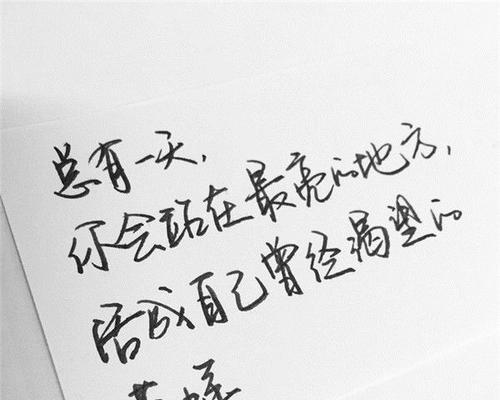 总有一天,
你会站在最亮的地方,
活成自己曾经渴望的